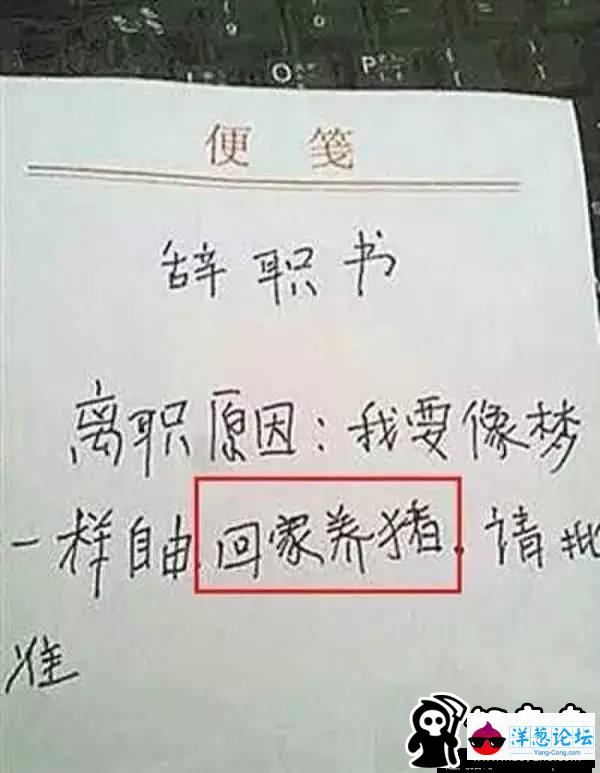 O P
便笺
辞职书
离职原因：我要像梦
一样自由.回家养猪.请批
准
洋葱论坛
Yang-Cong.com